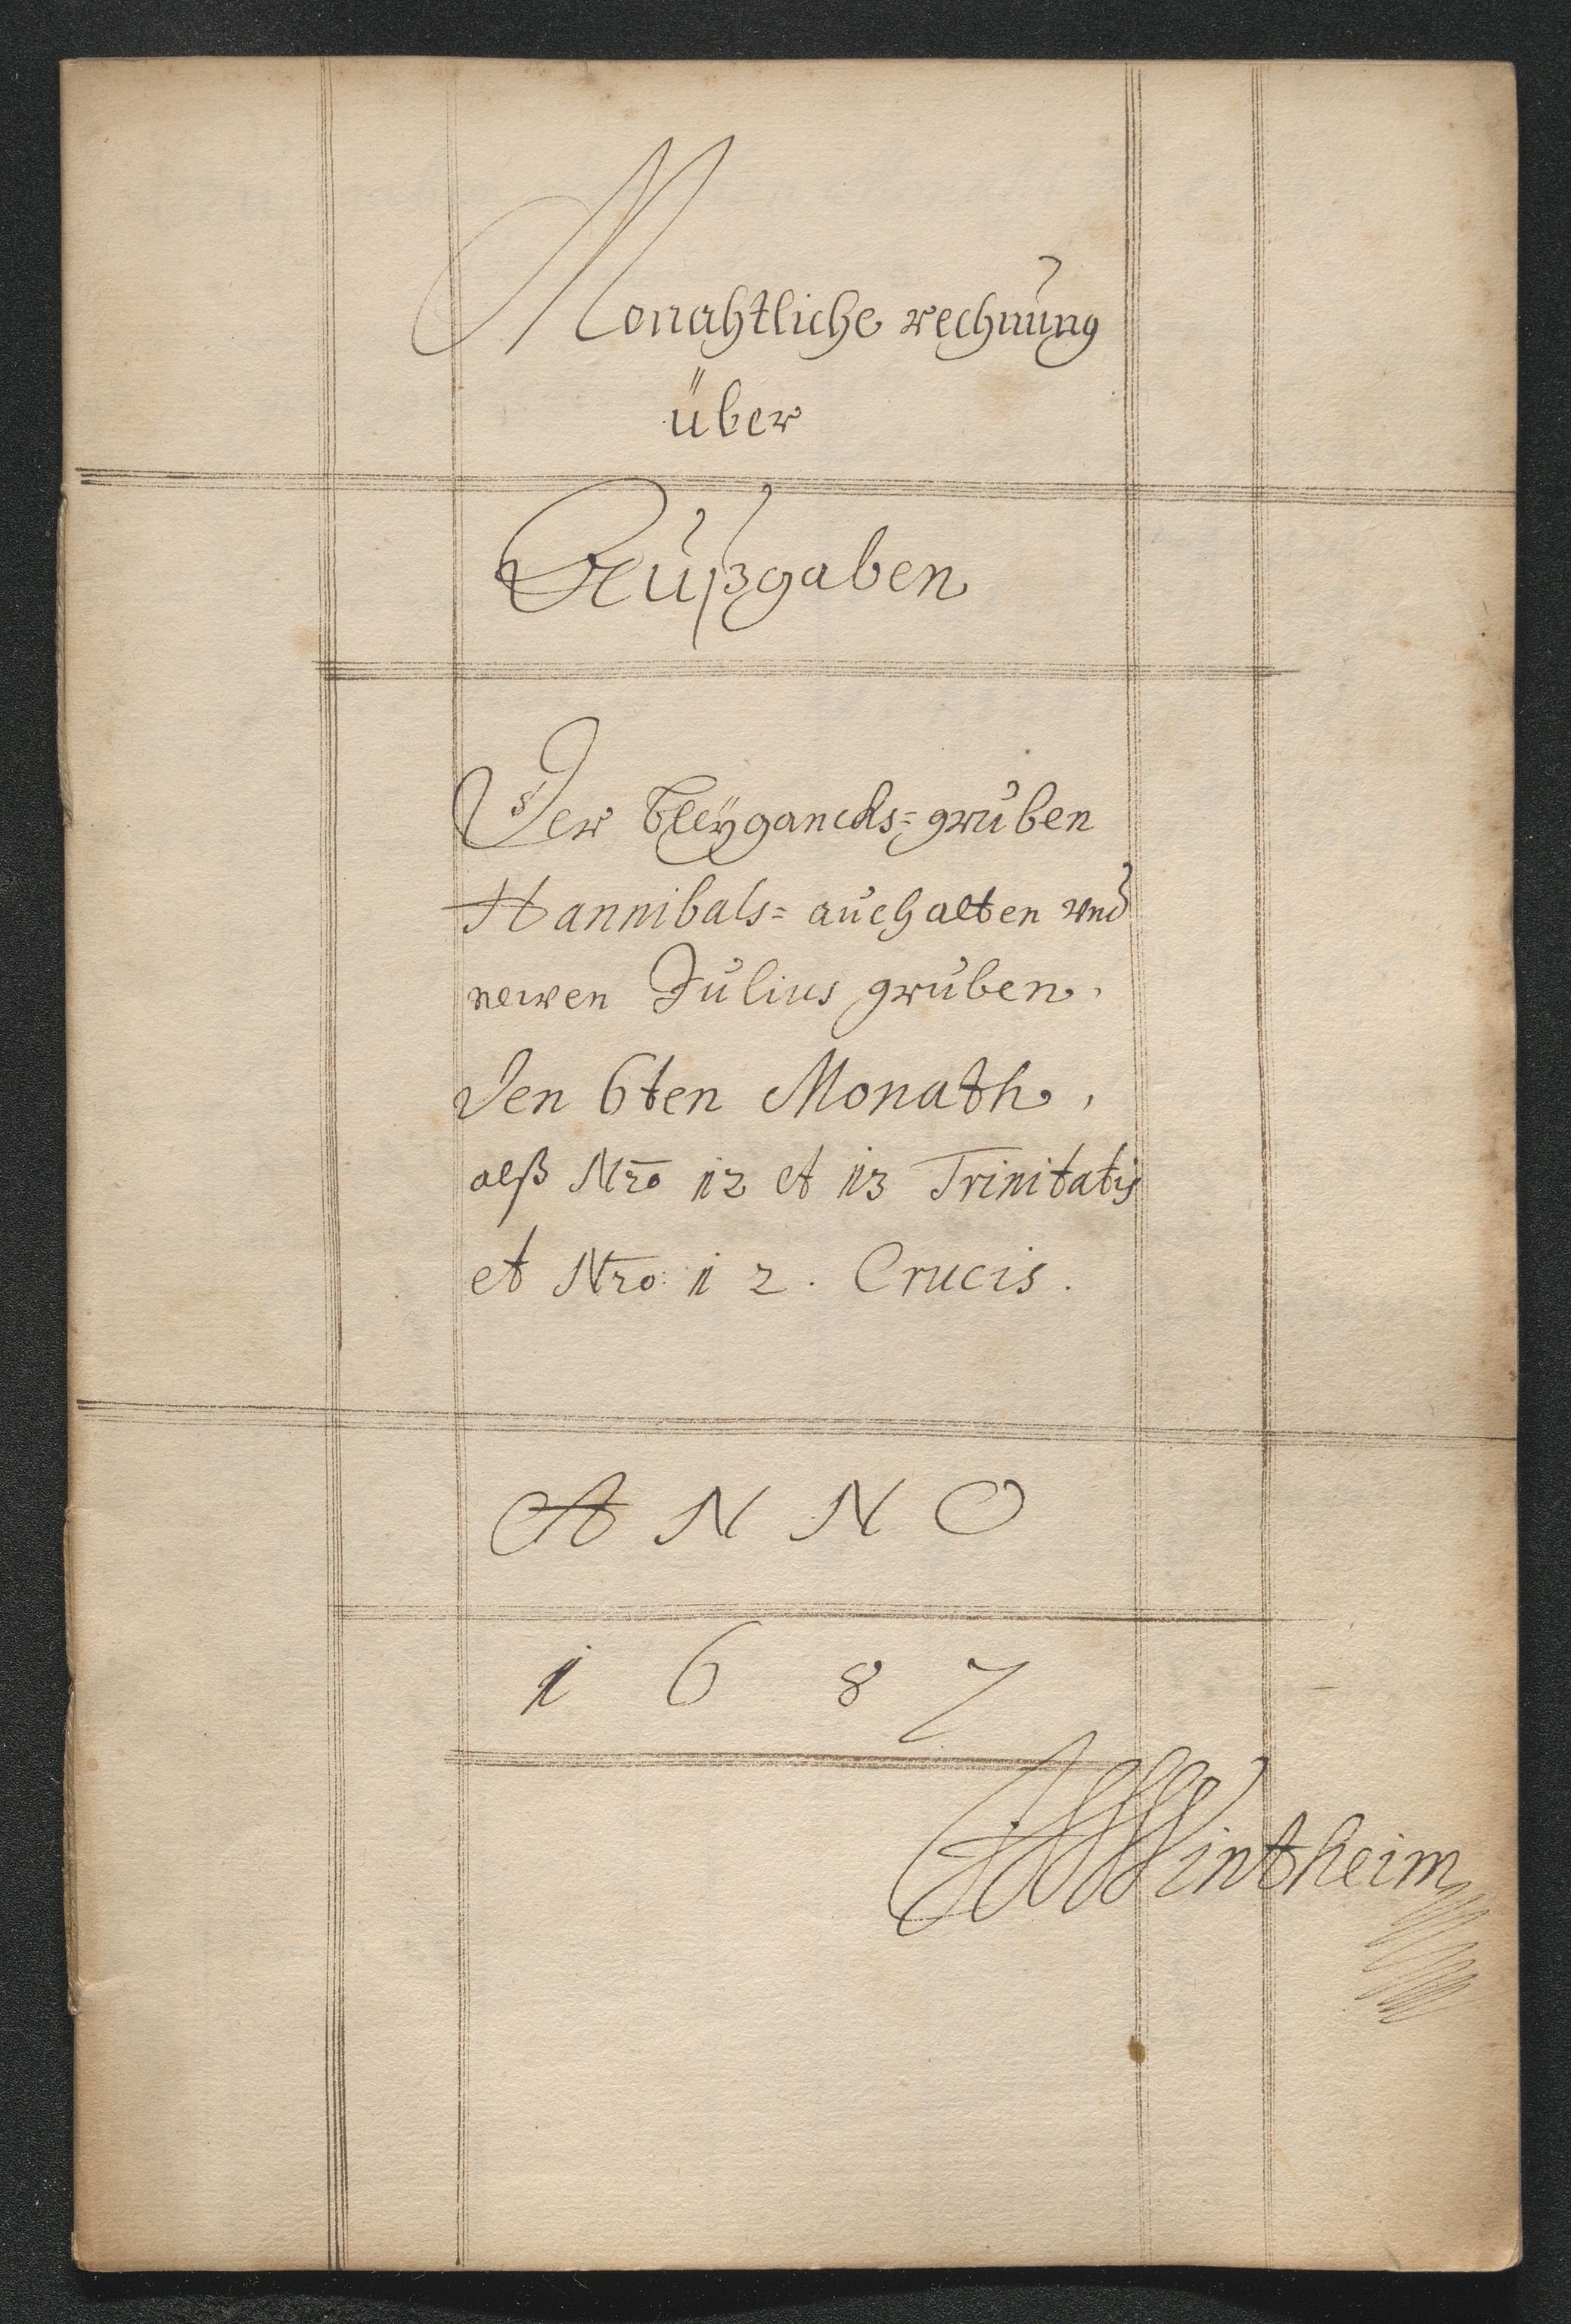 Monahtliche rechnung
über
Außgaben
Der bleÿgancks= gruben
Hannibals= auch alten vnd
newen Julius gruben,
den 6ten Monath,
alß Nr̅o 12 et 13 Trinitatis
et Nro: 12. Crucis.
ANNO
1687
Wintheim